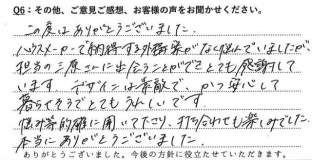 Q6：その他、ご意見ご感想、お客様の声をお聞かせください。
この度はありがとうございました。
ハウスメーカーで納得する外断熱がなく悩んでいましたが、
担当の三原さんに出会うことができとても感謝して
います。デザインは素敵で、かつ安心して
暮らせそうでとてもうれしいです。
悩み等的確に聞いて下さり、打ち合わせも楽しみでした。
本当にありがとうございました。
ありがとうございました。今後の方針に役立たせていただきます。